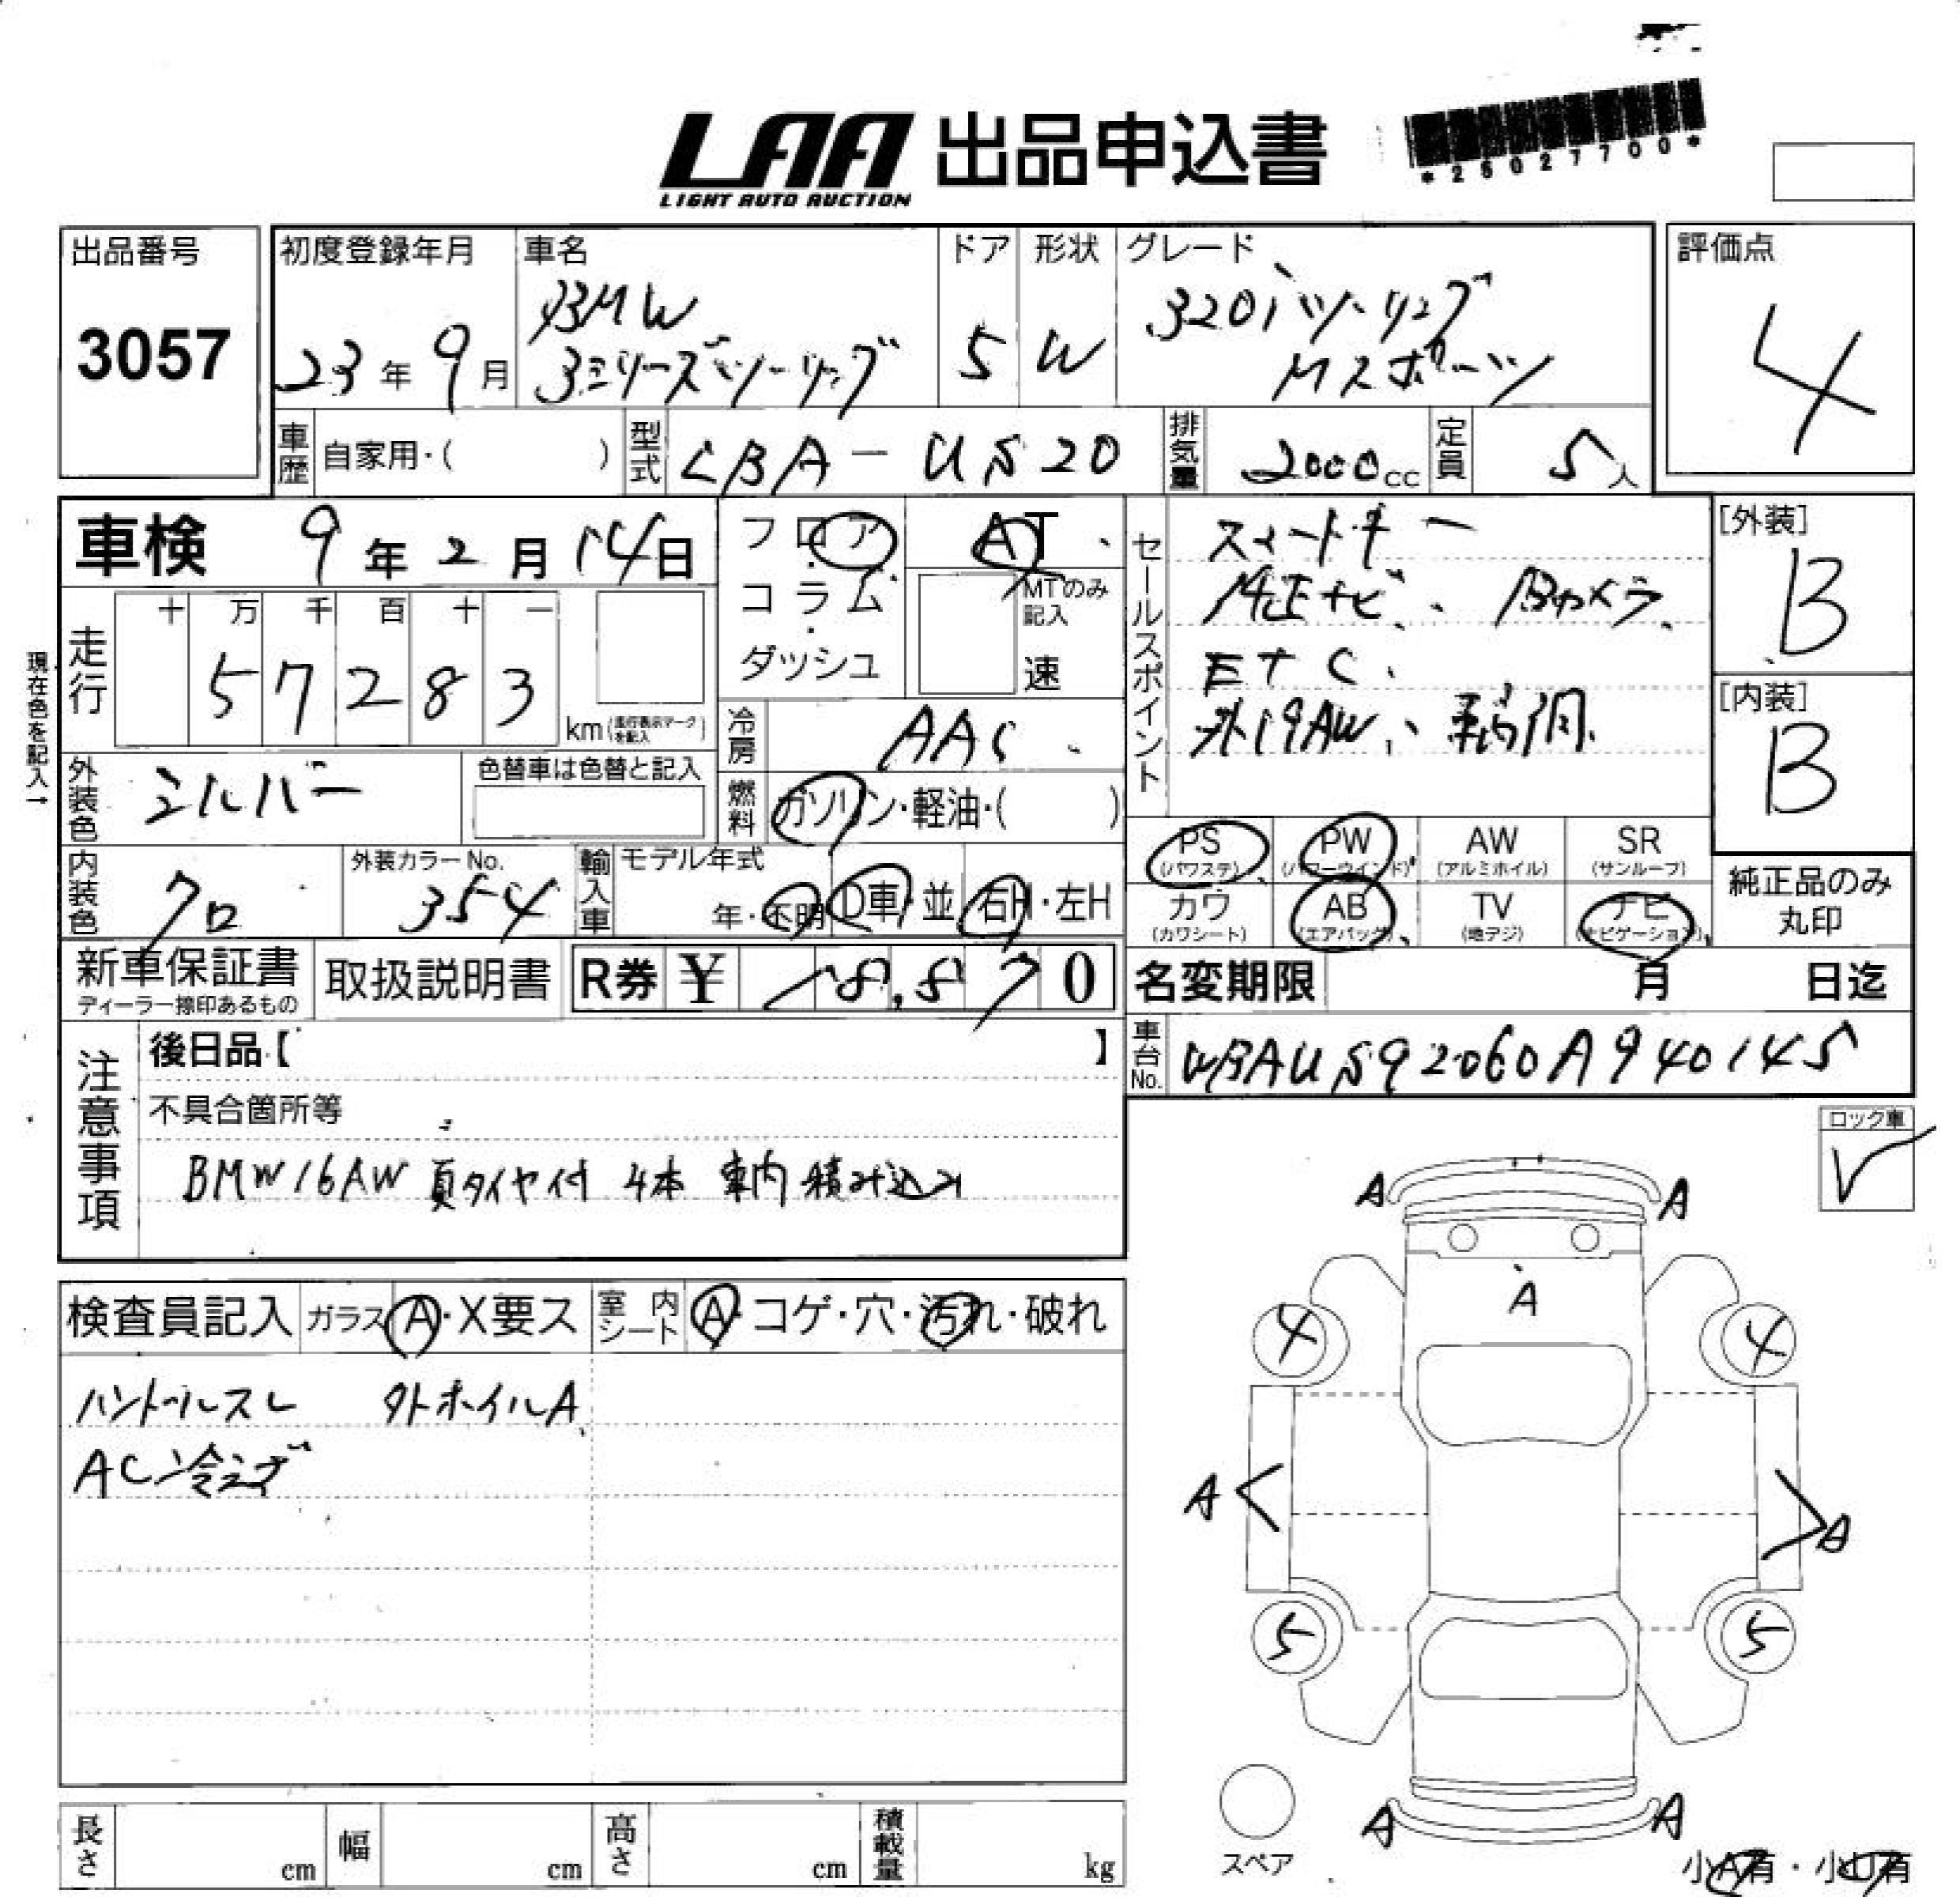 LAA 出品申込書
LIGHT AUTO AUCTION
*25027700*
出品番号
3057
初度登録年月
23年9月
車名
BMW
3シリーズツーリング
ドア
5
形状
W
グレード
320iツーリング
Mスポーツ
評価点
4
車歴 自家用・( )
型式 LBA-US20
排気量 2000cc
定員 5人
車検 9年2月14日
フロア・コラム・ダッシュ
AT
MTのみ記入
速
現在色を記入→
走行
十 万 千 百 十 一
5 7 2 8 3
km(走行表示マークを記入)
冷房 AAC
燃料 ガソリン・軽油・( )
外装色 シルバー
色替車は色替と記入
内装色 クロ
外装カラーNo. 354
輸入車
モデル年式
年・不明
D車・並
右H・左H
セールスポイント
スマートキー
純正ナビ、Bカメラ
ETC
外19AW、
[外装]
B
[内装]
B
PS (パワステ)
PW (パワーウインド)
AW (アルミホイル)
SR (サンルーフ)
カワ (カワシート)
AB (エアバッグ)
TV (地デジ)
ナビ (ナビゲーション)
純正品のみ
丸印
新車保証書
ディーラー捺印あるもの
取扱説明書
R券 ¥ 18,870
名変期限 月 日迄
車台No. WBAUS92060A940145
注意事項
後日品【 】
不具合箇所等
BMW16AW 夏タイヤ付 4本 車内積み込み
ロック車
✓
検査員記入
ガラス A・X要ス
室内シート A・コゲ・穴・汚れ・破れ
ハンドルスレ 外ホイルA
AC冷えず
A A
A
4 4
A< >A
5 5
A A
スペア
小A有・小U有
長さ cm
幅 cm
高さ cm
積載量 kg